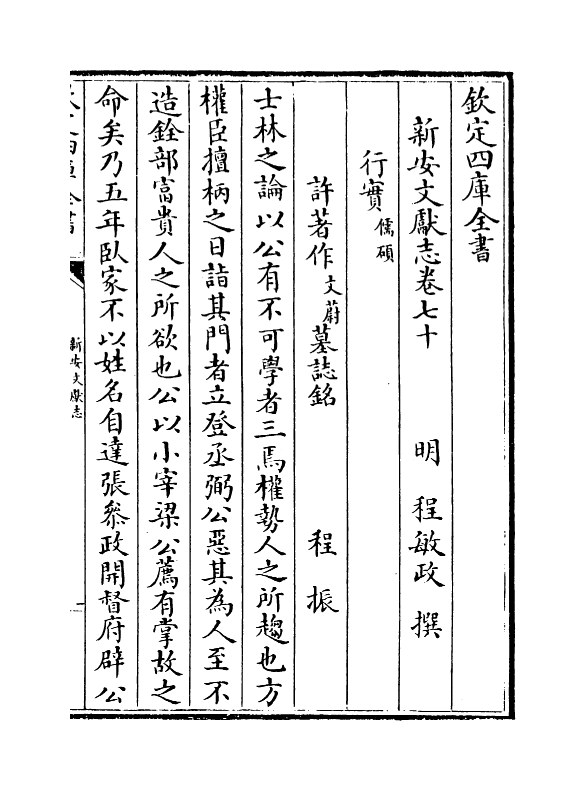 欽定四庫全書
新安文獻志卷七十　　明　程敏政　撰
行實儒碩
許著作文蔚墓誌銘　　程振
士林之論以公有不可學者三焉權勢人之所趨也方
權臣擅柄之日詣其門者立登丞弼公惡其為人至不
造銓部富貴人之所欲也公以小宰梁公薦有掌故之
命矣乃五年臥家不以姓名自達張叅政開督府辟公
新安文獻志
一